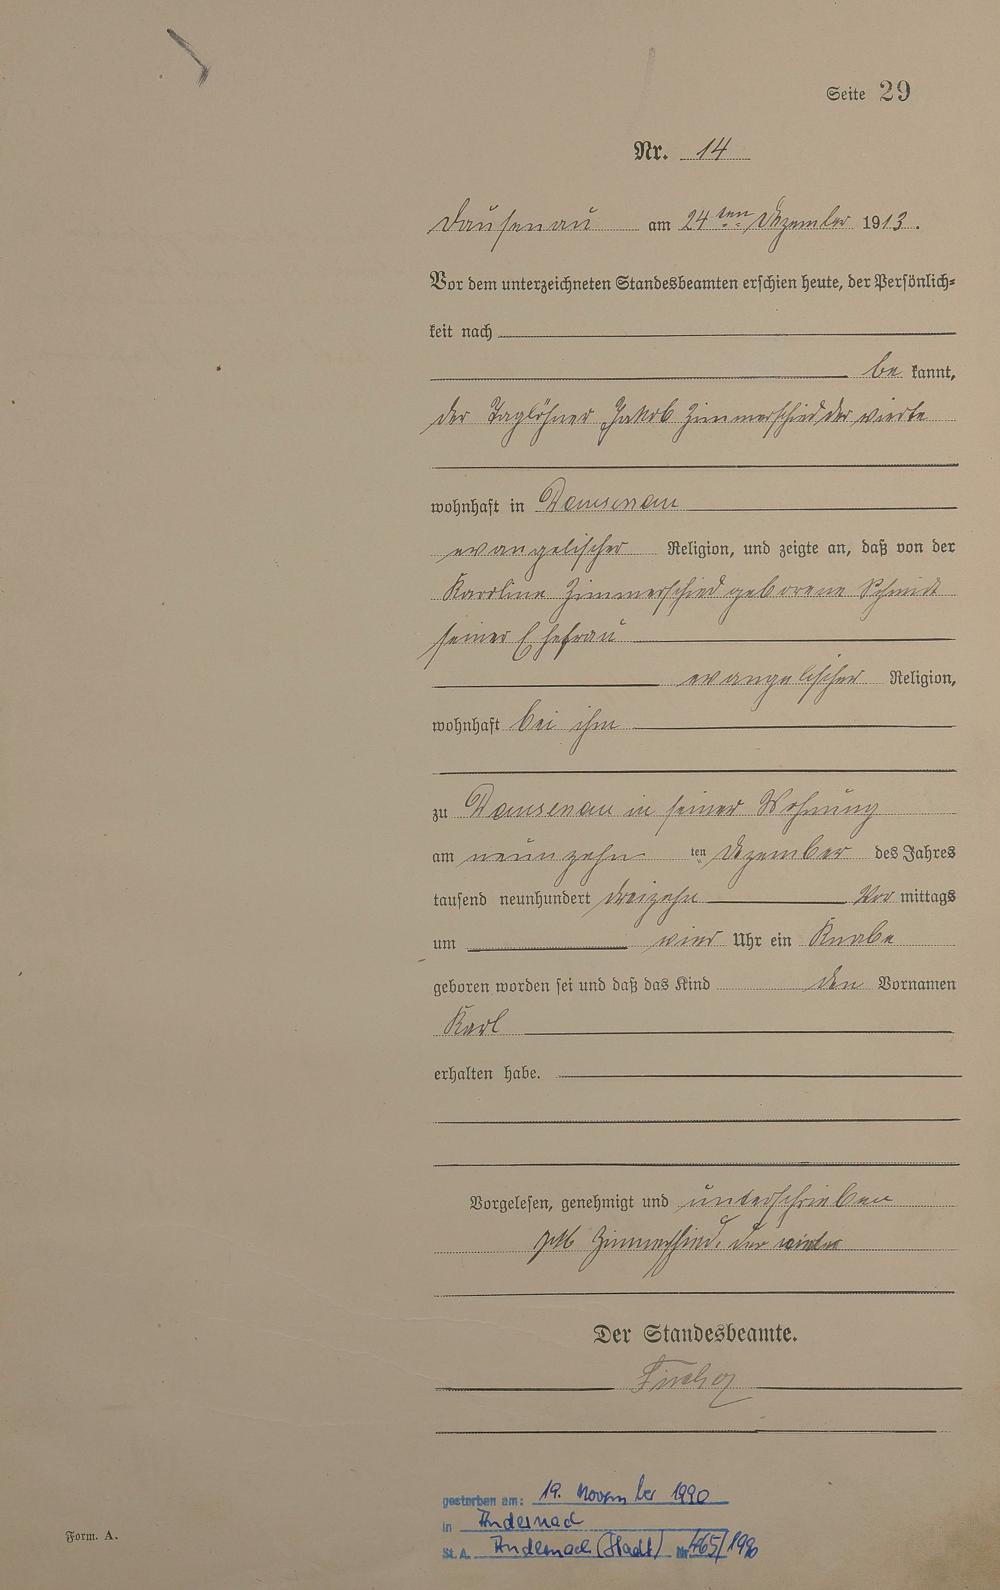 Seite 29
Nr. 14
Dausenau am 24ten Dezember 1913.
Vor dem unterzeichneten Standesbeamten erschien heute, der Persönlich-
keit nach
be kannt,
der Taglöhner Jakob Zimmerschied der vierte
wohnhaft in Dausenau
evangelischer Religion, und zeigte an, daß von der
Karoline Zimmerschied geborene Schmidt
seiner Ehefrau
evangelischer Religion,
wohnhaft bei ihm
zu Dausenau in seiner Wohnung
am neunzehn ten Dezember des Jahres
tausend neunhundert dreizehn Vor mittags
um vier Uhr ein Knabe
geboren worden sei und daß das Kind den Vornamen
Karl
erhalten habe.
Vorgelesen, genehmigt und unterschrieben
Zimmerschied. der vierte
Der Standesbeamte.
gestorben am: 19. November 1990
in Andernach
St. A. Andernach (Stadt) Nr. 465/1990
Form. A.